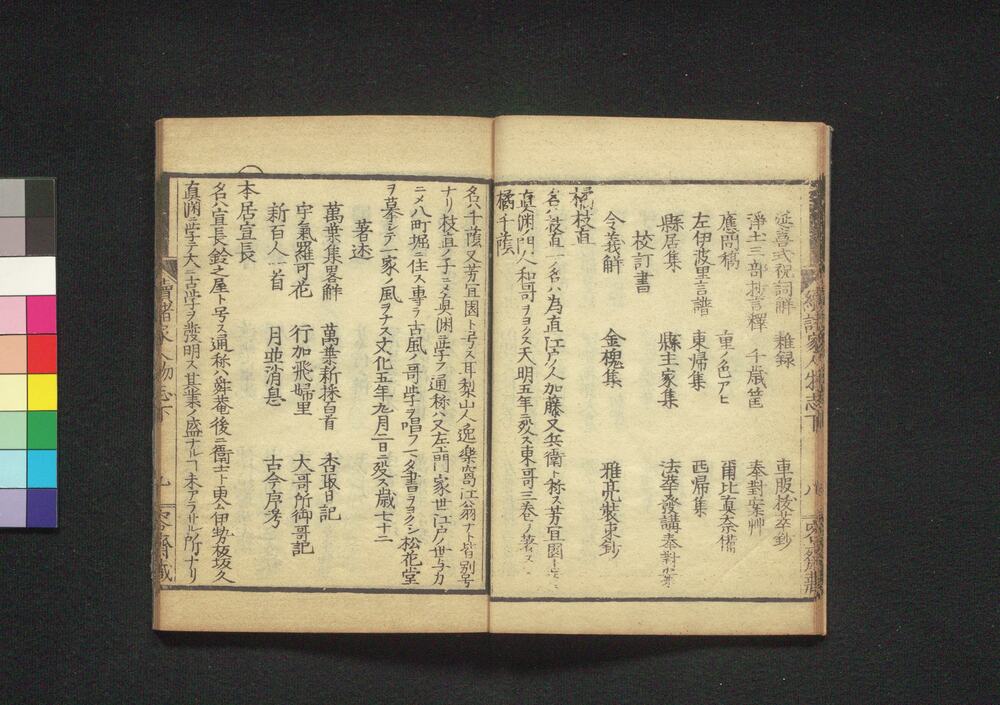 延喜式祝詞解　雜録　車服抜萃鈔
淨土三部抄言釋　千歳筐　奉對案艸
應問稿　童ノ色アヒ　爾比真奈備
左伊波里言譜　東帰集　西帰集
縣居集　縣主家集　法華發講奏對
校訂書
令義解　金槐集　雅亮裝束鈔
橘枝直
名ハ枝直一名ハ為直江戸ノ人加藤又兵衛ト称ス芳宜園ト
真渕門人和哥ヲヨクス天明五年ニ殁ス東哥三巻ノ著ス
橘千蔭
名ハ千蔭又芳宜園ト号ス耳梨山人逸樂窩江翁ナト皆別号
ナリ枝直ノ子ニメ真渕ニ學フ通称ハ又左エ門家世江戸ノ世与力
ニメ八町堀ニ住ス専ラ古風ノ哥學ヲ唱フ一タ書ヲヨクシ松花堂
ヲ慕シテ一家ノ風ヲナス文化五年九月二日ニ殁ス歳七十二
著述
萬葉集畧解　萬葉新採百首　香取日記
宇氣羅可花　行加飛婦里　大哥所御哥記
新百人一首　月並消息　古今序考
本居宣長
名ハ宣長鈴之屋ト号ス通称ハ舜菴後ニ衛士ト更ム伊勢板坂久
真渕ニ學テ大ニ古學ヲ發明ス其業ノ盛ナルヿ未アラサル所ナリ
續諸家人物志下　九
續諸家人物志下　八